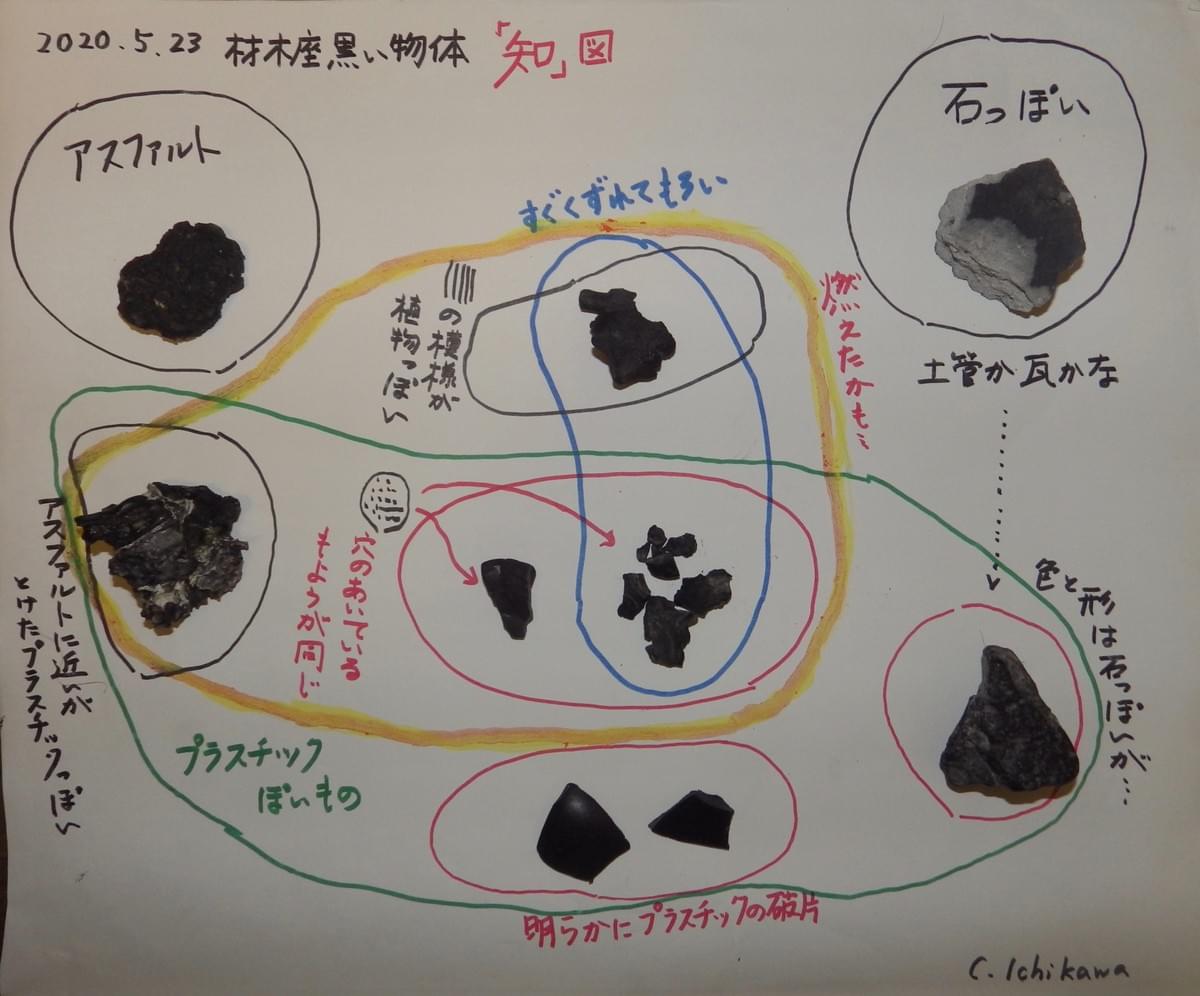 2020.5.23 材木座黒い物体 「知」図
アスファルト
石っぽい
すぐくずれてもろい
燃えたかも…
の模様が
植物っぽい
土管か瓦かな
穴のあいている
もようが同じ
アスファルトに近いが
とけたプラスチックっぽい
色と形は石っぽいが…
プラスチック
ぽいもの
明らかにプラスチックの破片
C. Ichikawa